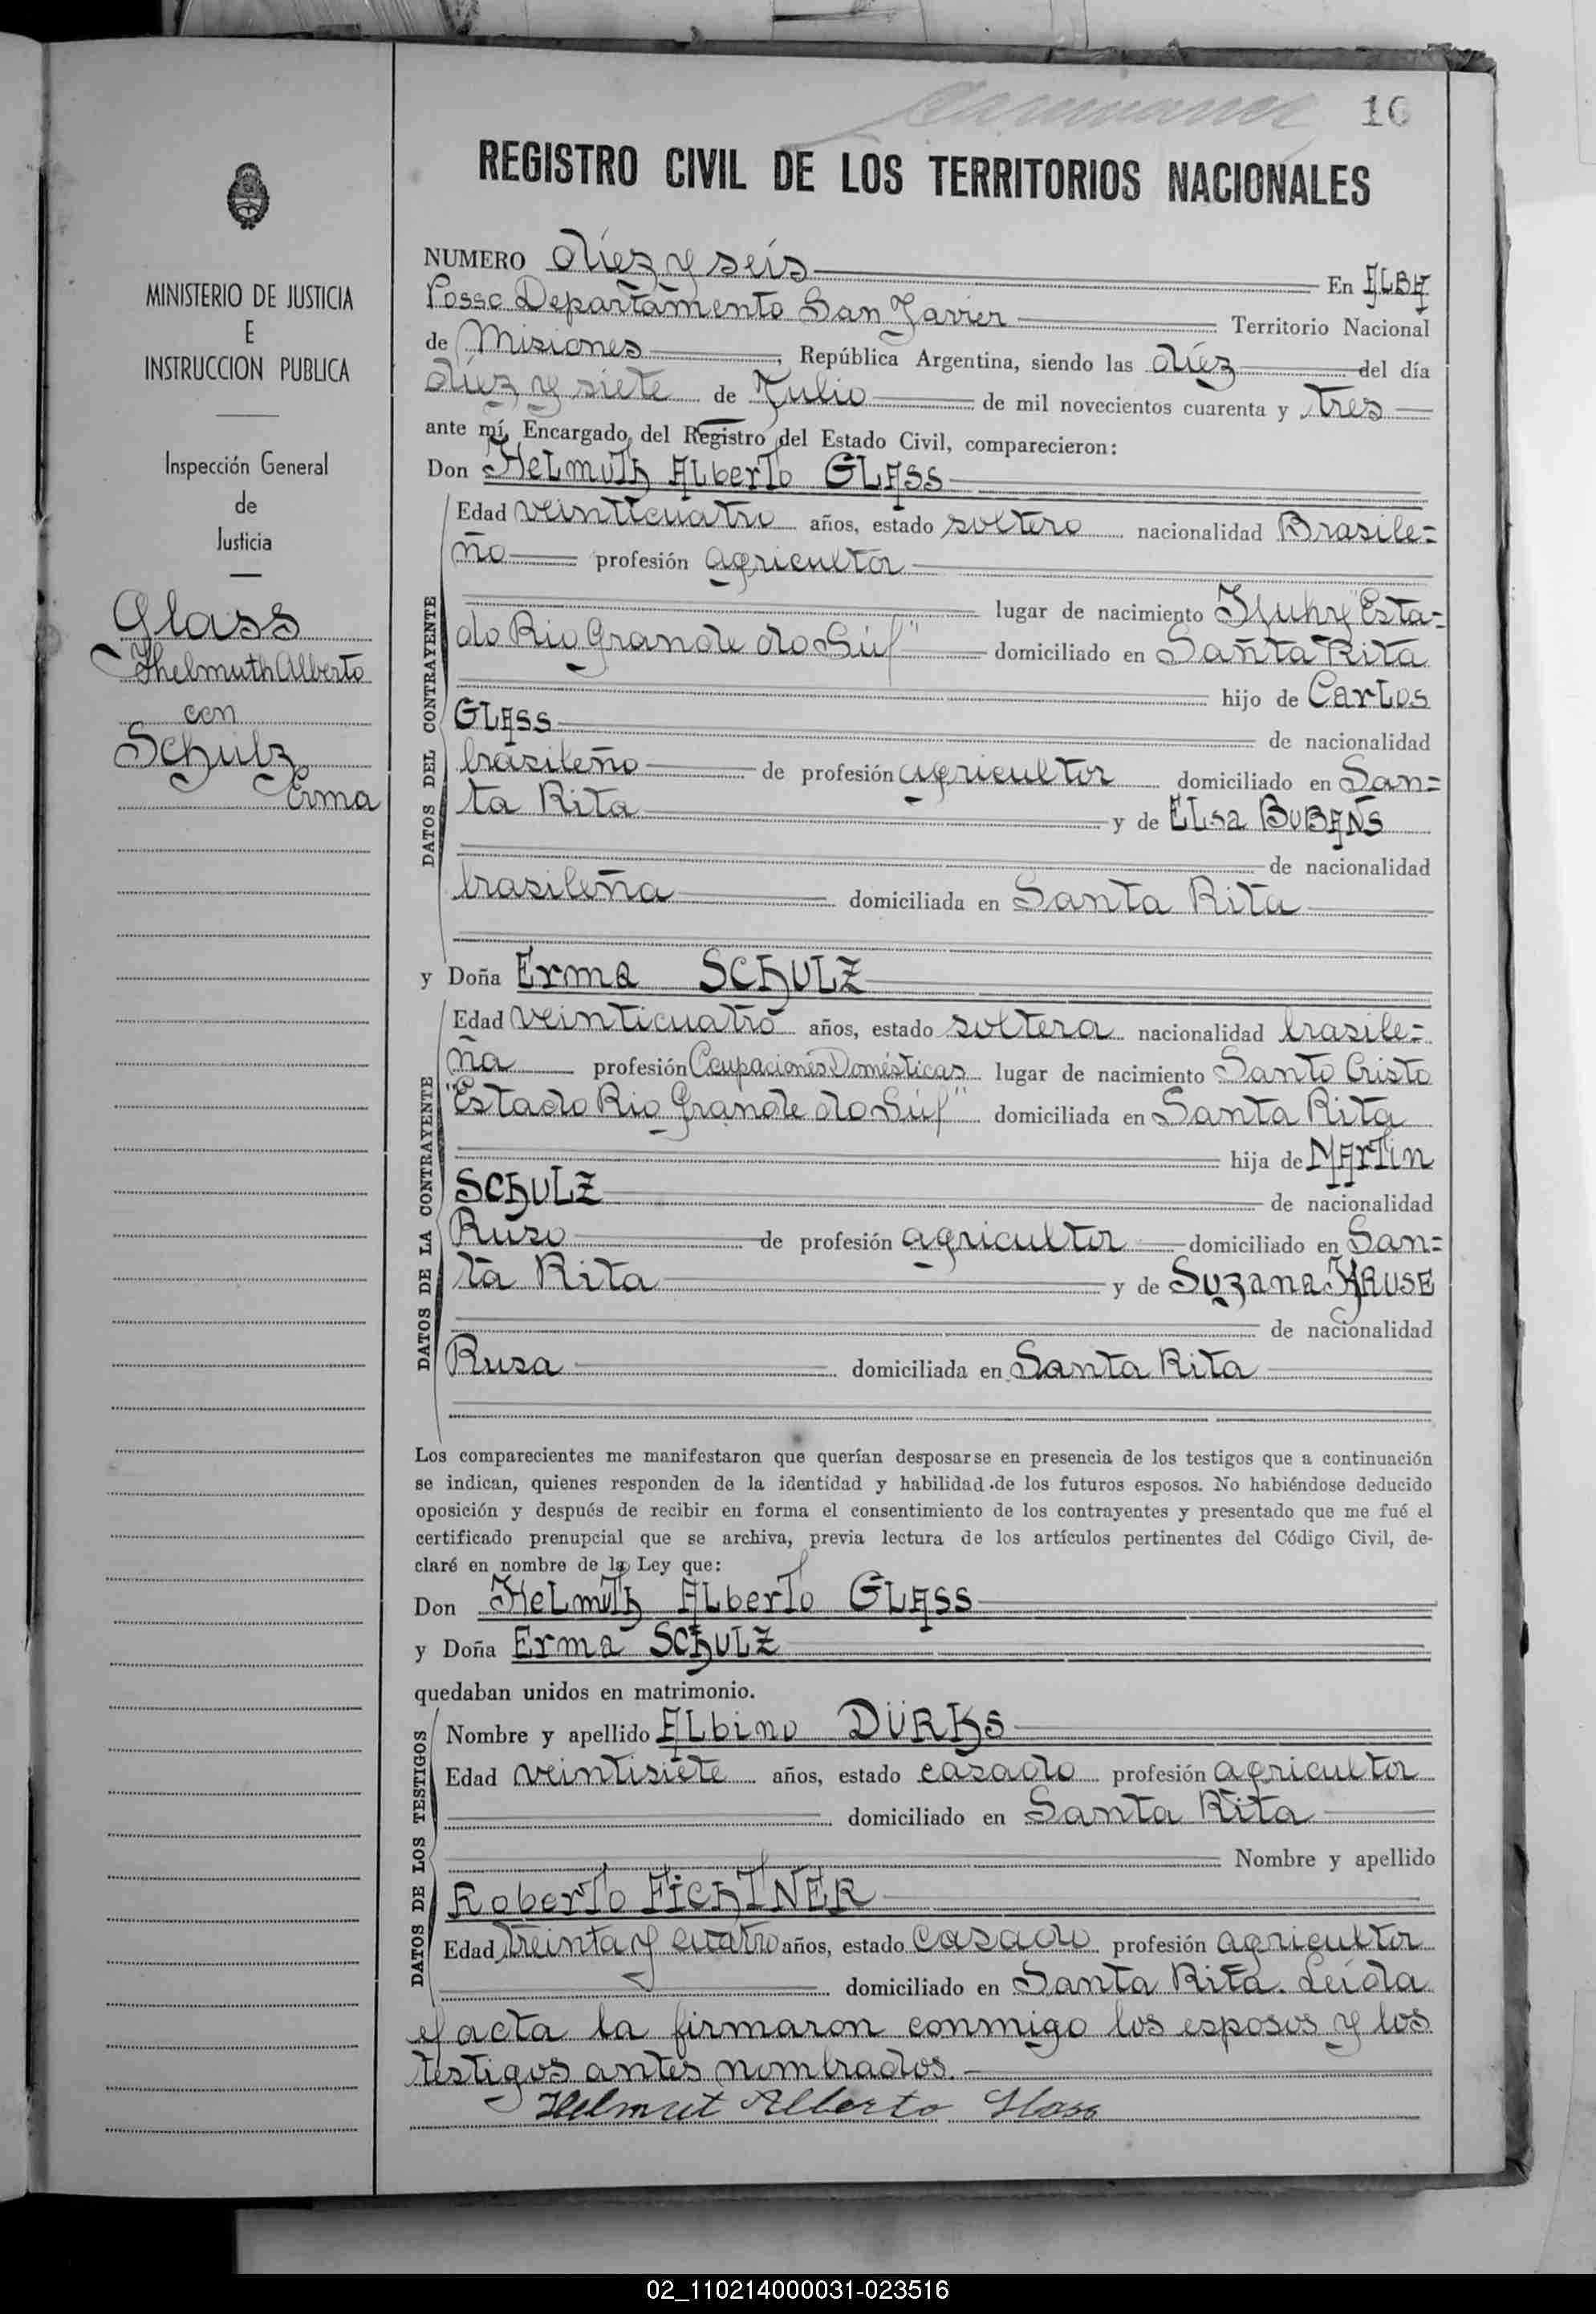 16
REGISTRO CIVIL DE LOS TERRITORIOS NACIONALES
MINISTERIO DE JUSTICIA
E
INSTRUCCION PUBLICA
Inspección General
de
Justicia
Glass
Thelmuth Alberto
con
Schulz
Erma
NUMERO diez y seis En ALBA
Posse Departamento San Javier Territorio Nacional
de Misiones, República Argentina, siendo las diez del día
diez y siete de Julio de mil novecientos cuarenta y tres
ante mí, Encargado del Registro del Estado Civil, comparecieron:
Don Helmuth Alberto GLASS
DATOS DEL CONTRAYENTE
Edad veinticuatro años, estado soltero nacionalidad Brasile=
ño profesión agricultor
lugar de nacimiento Ijuhy "Esta=
do Rio Grande do Súl" domiciliado en Santa Rita
hijo de Carlos
GLASS de nacionalidad
brasileño de profesión agricultor domiciliado en San=
ta Rita y de Elsa BUBANS
de nacionalidad
brasileña domiciliada en Santa Rita
y Doña Erma SCHULZ
DATOS DE LA CONTRAYENTE
Edad veinticuatro años, estado soltera nacionalidad brasile=
ña profesión Ocupaciones Domésticas lugar de nacimiento Santo Cristo
"Estado Rio Grande do Súl" domiciliada en Santa Rita
hija de Martin
SCHULZ de nacionalidad
Ruso de profesión agricultor domiciliado en San=
ta Rita y de Suzana KRUSE
de nacionalidad
Rusa domiciliada en Santa Rita
Los comparecientes me manifestaron que querían desposarse en presencia de los testigos que a continuación
se indican, quienes responden de la identidad y habilidad de los futuros esposos. No habiéndose deducido
oposición y después de recibir en forma el consentimiento de los contrayentes y presentado que me fué el
certificado prenupcial que se archiva, previa lectura de los artículos pertinentes del Código Civil, de-
claré en nombre de la Ley que:
Don Helmuth Alberto GLASS
y Doña Erma SCHULZ
quedaban unidos en matrimonio.
DATOS DE LOS TESTIGOS
Nombre y apellido Albino DÜRKS
Edad veintisiete años, estado casado profesión agricultor
domiciliado en Santa Rita
Nombre y apellido
Roberto FICHTNER
Edad treinta y cuatro años, estado casado profesión agricultor
domiciliado en Santa Rita. Leída
el acta la firmaron conmigo los esposos y los
testigos antes nombrados.
Helmut Alberto Glass
02_110214000031-023516